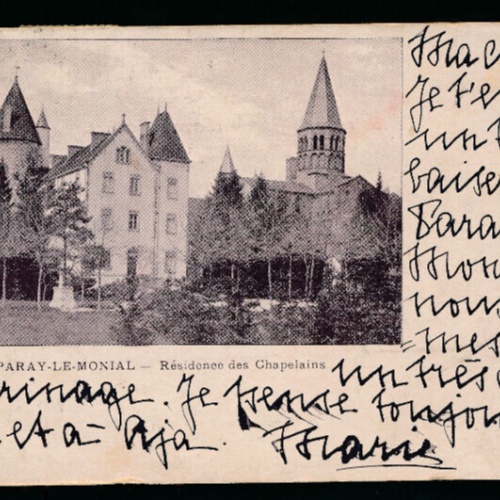 Je t'e
un
baise
Para
Mon
nous
=mes
PARAY-LE-MONIAL — Résidence des Chapelains
un très
rinage. Je pense toujou
et à Aja. Marie